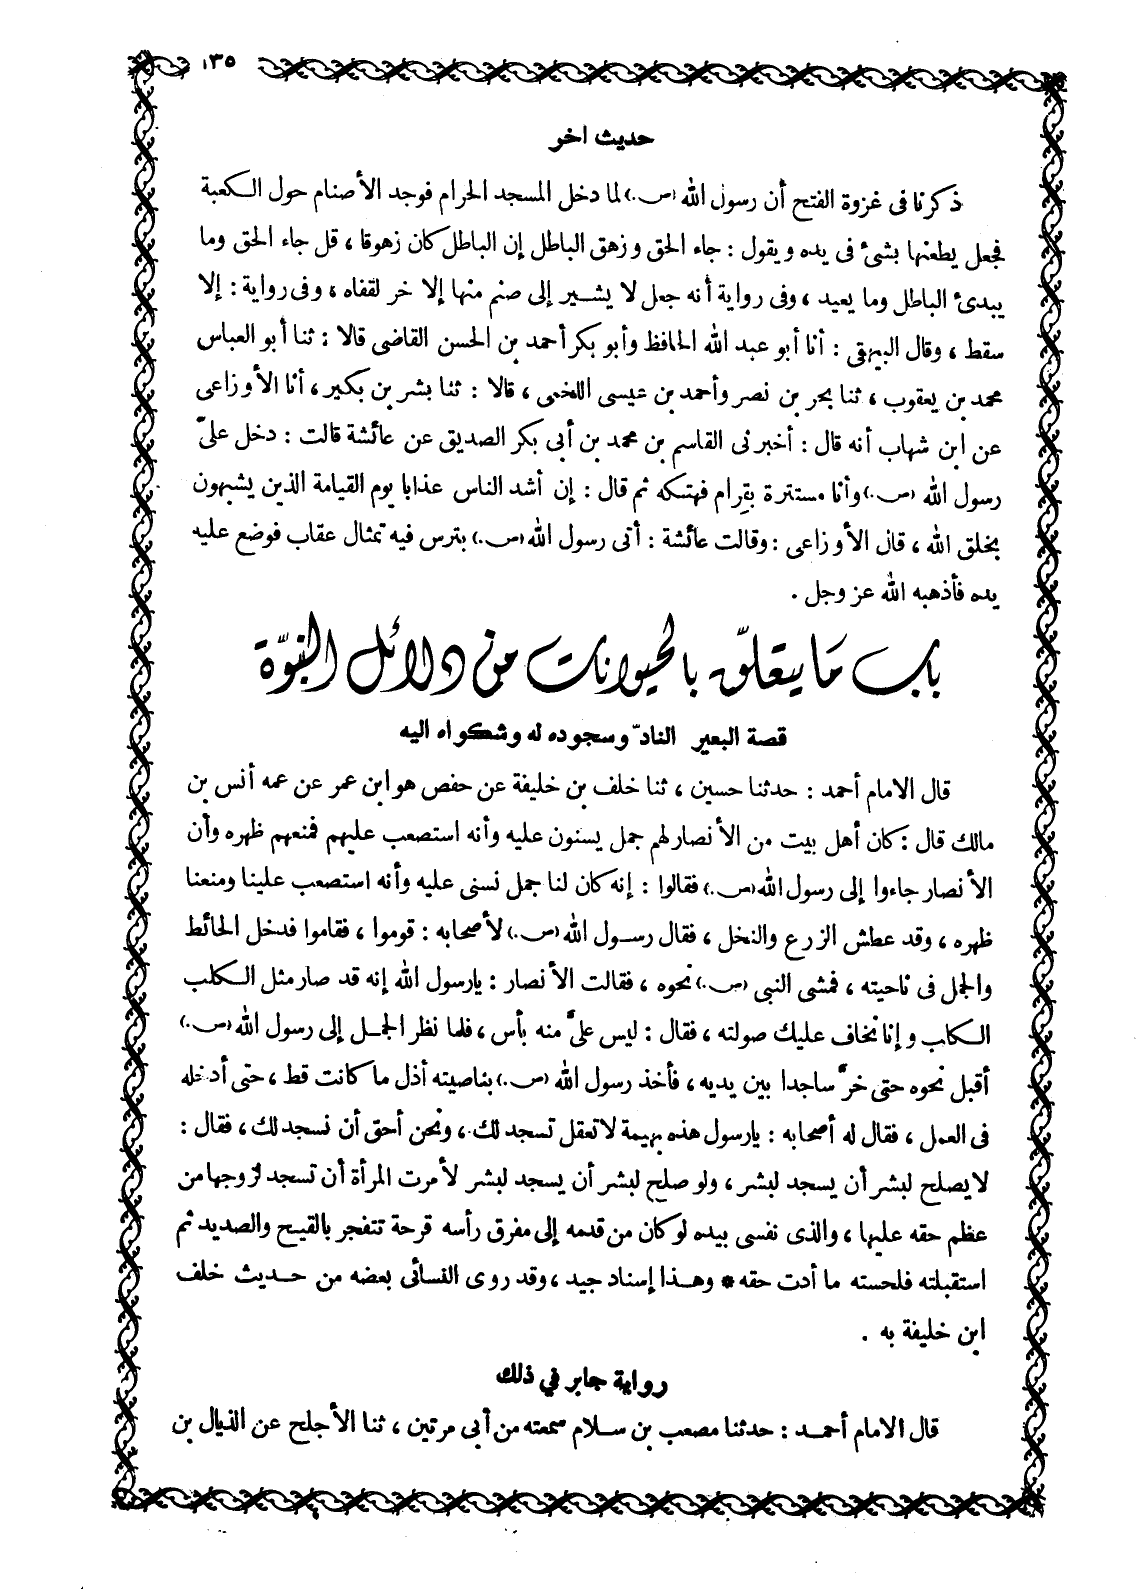 ١٣٥
حديث اخر
ذكرنا فى غزوة الفتح أن رسول الله (ص.) لما دخل المسجد الحرام فوجد الأصنام حول الكعبة
فجعل يطعنها بشئ فى يده ويقول : جاء الحق وزهق الباطل إن الباطل كان زهوقا ، قل جاء الحق وما
يبدئ الباطل وما يعيد ، وفى رواية أنه جعل لا يشير إلى صنم منها إلا خر لقفاه ، وفى رواية : إلا
سقط ، وقال البيهقى : أنا أبو عبد الله الحافظ وأبو بكر أحمد بن الحسن القاضى قالا : ثنا أبو العباس
محمد بن يعقوب ، ثنا بحر بن نصر وأحمد بن عيسى اللخمى ، قالا : ثنا بشر بن بكير ، أنا الأوزاعى
عن ابن شهاب أنه قال : أخبرنى القاسم بن محمد بن أبى بكر الصديق عن عائشة قالت : دخل علىّ
رسول الله (ص.) وأنا مستترة بقرام فهتكه ثم قال : إن أشد الناس عذابا يوم القيامة الذين يشبهون
بخلق الله ، قال الأوزاعى : وقالت عائشة : أتى رسول الله (ص.) بترس فيه تمثال عقاب فوضع عليه
يده فأذهبه الله عز وجل .
باب مَا يتعلّق بالحيوانات من دلائل النبوّة
قصة البعير النادّ وسجوده له وشكواه اليه
قال الامام أحمد : حدثنا حسين ، ثنا خلف بن خليفة عن حفص هو ابن عمر عن عمه أنس بن
مالك قال : كان أهل بيت من الأنصار لهم جمل يسنون عليه وأنه استصعب عليهم فمنعهم ظهره وأن
الأنصار جاءوا إلى رسول الله (ص.) فقالوا : إنه كان لنا جمل نسنى عليه وأنه استصعب علينا ومنعنا
ظهره ، وقد عطش الزرع والنخل ، فقال رسول الله (ص.) لأصحابه : قوموا ، فقاموا فدخل الحائط
والجمل فى ناحيته ، فمشى النبى (ص.) نحوه ، فقالت الأنصار : يارسول الله إنه قد صار مثل الكلب
الكلب وإنا نخاف عليك صولته ، فقال : ليس علىَّ منه بأس ، فلما نظر الجمل إلى رسول الله (ص.)
أقبل نحوه حتى خرَّ ساجدا بين يديه ، فأخذ رسول الله (ص.) بناصيته أذل ما كانت قط ، حتى أدخله
فى العمل ، فقال له أصحابه : يارسول هذه بهيمة لا تعقل تسجد لك ، ونحن أحق أن نسجد لك ، فقال :
لا يصلح لبشر أن يسجد لبشر ، ولو صلح لبشر أن يسجد لبشر لأمرت المرأة أن تسجد لزوجها من
عظم حقه عليها ، والذى نفسى بيده لو كان من قدمه إلى مفرق رأسه قرحة تتفجر بالقيح والصديد ثم
استقبلته فلحسته ما أدت حقه * وهذا إسناد جيد ، وقد روى النسائى بعضه من حديث خلف
ابن خليفة به .
رواية جابر في ذلك
قال الامام أحمد : حدثنا مصعب بن سلام سمعته من أبى مرتين ، ثنا الأجلح عن الذيال بن